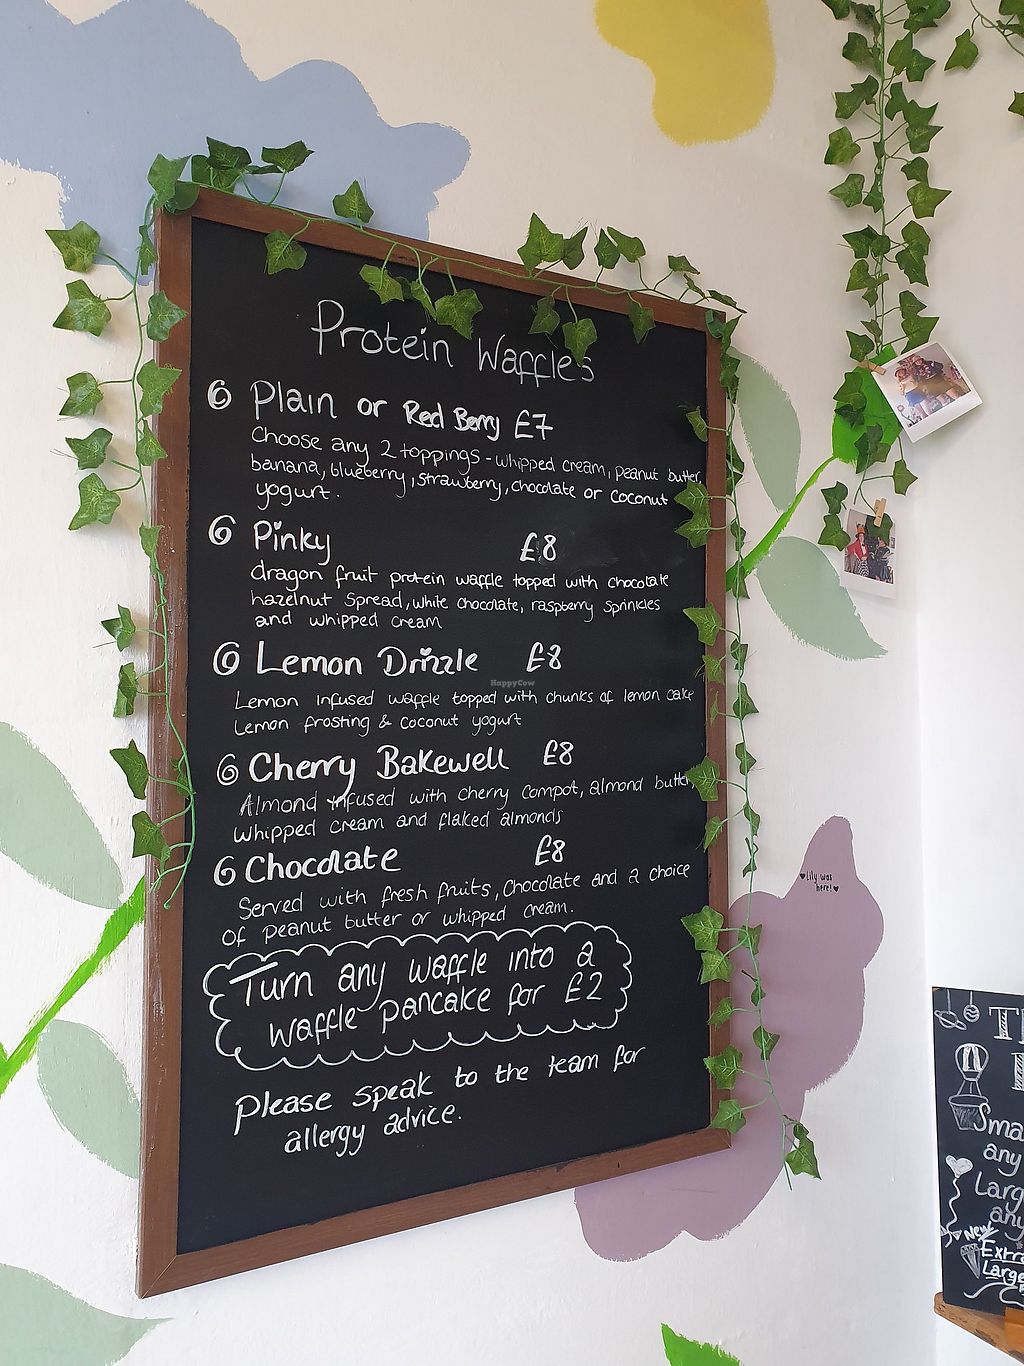 Protein Waffles
6 Plain or Red Berry £7
Choose any 2 toppings - whipped cream, peanut butter,
banana, blueberry, strawberry, chocolate or coconut
yogurt.
6 Pinky £8
dragon fruit protein waffle topped with chocolate
hazelnut spread, white chocolate, raspberry sprinkles
and whipped cream
6 Lemon Drizzle £8
HappyCow
Lemon infused waffle topped with chunks of lemon cake
Lemon frosting & coconut yogurt
6 Cherry Bakewell £8
Almond infused with cherry compot, almond butter,
whipped cream and flaked almonds
6 Chocolate £8
Served with fresh fruits, chocolate and a choice
of peanut butter or whipped cream.
Turn any waffle into a
waffle pancake for £2
Please speak to the team for
allergy advice.
Lily was
here!
Sma
any
Larg
any
New
Extra
Large